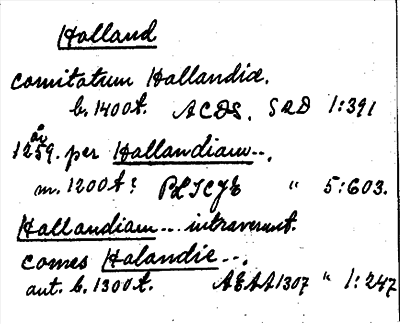 Halland
comitatum Hallandiæ.
b. 1400t. ACDS. SRD 1:391
år
1259. per Hallandiam--.
m. 1200t? " 5:603.
Hallandiam... intraverunt.
comes Halandie--.
aut. b. 1300t. AEAA1307 " 1:247